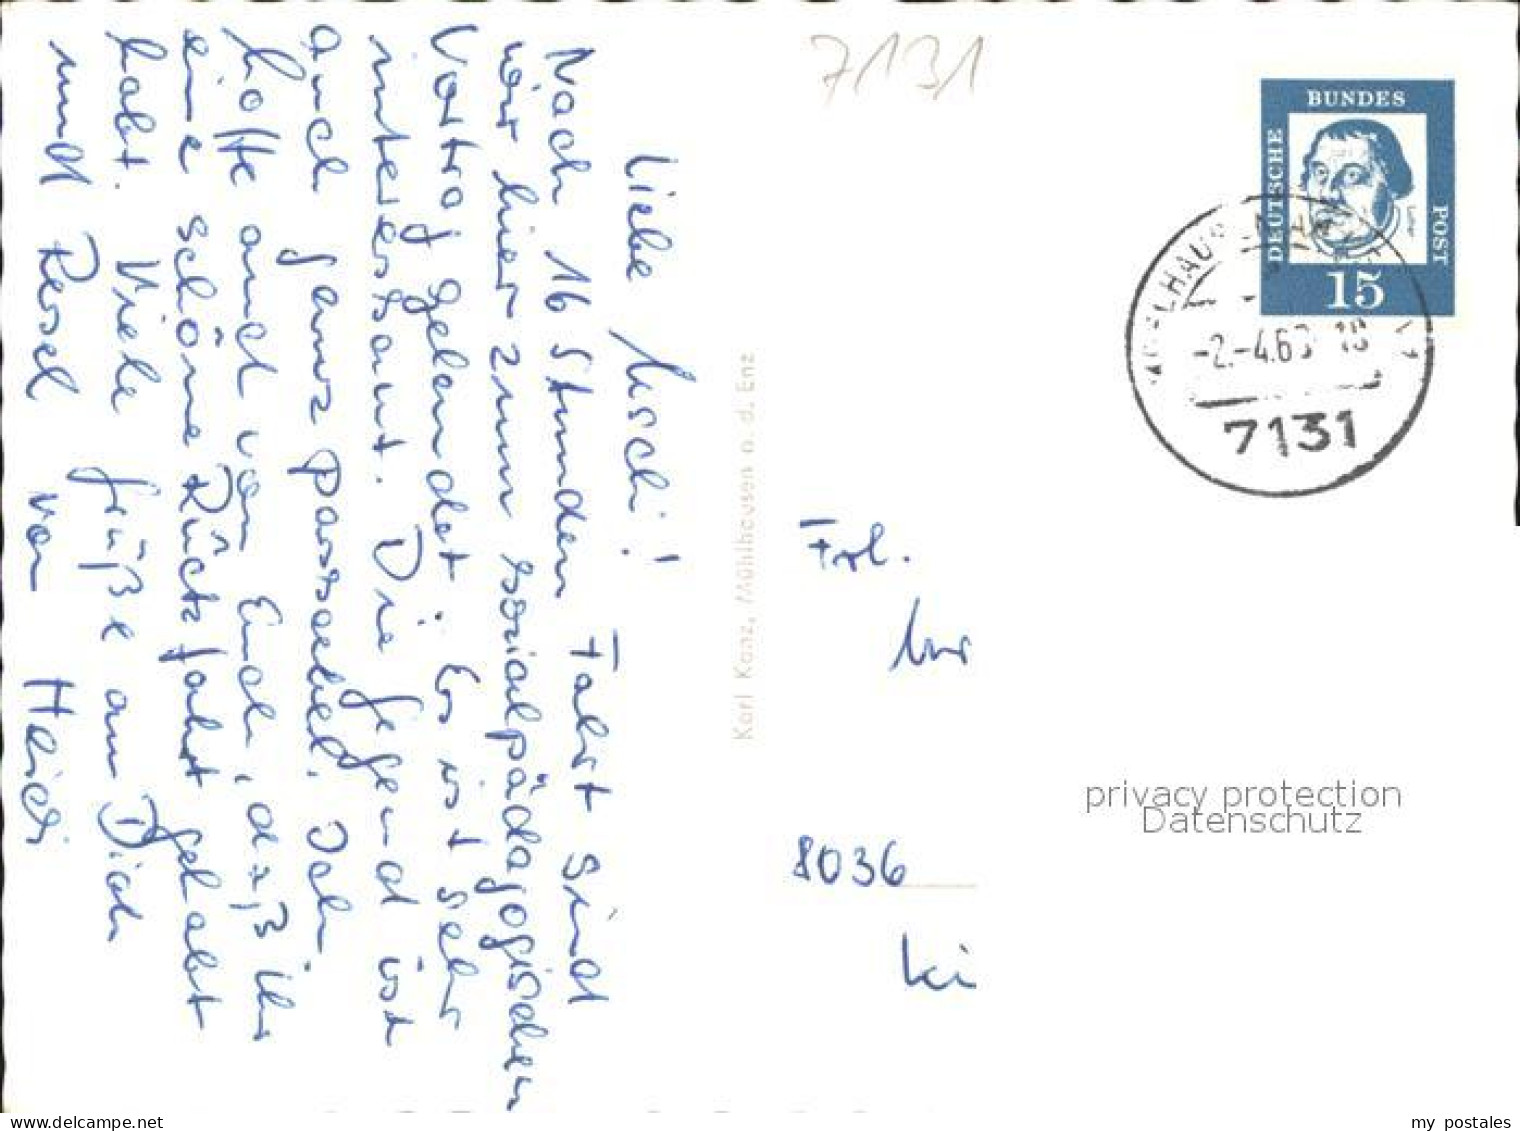 Liebe Uschi!
Nach 16 Stunden Fahrt sind
wir hier zum sozialpädagogischen
Vortrag gelandet. Es ist sehr
interessant. Die Gegend ist
auch ganz passabel. Ich
hoffe auch von Euch, daß Ihr
eine schöne Rückfahrt gehabt
habt. Viele Grüße an Dich
und Resel von Heidi
Karl Kanz, Mühlhausen a. d. Enz
7131
DEUTSCHE
BUNDES
POST
15
-2.-4.63
18
7131
Frl.
8036
Ki
privacy protection
Datenschutz
www.delcampe.net
my_postales